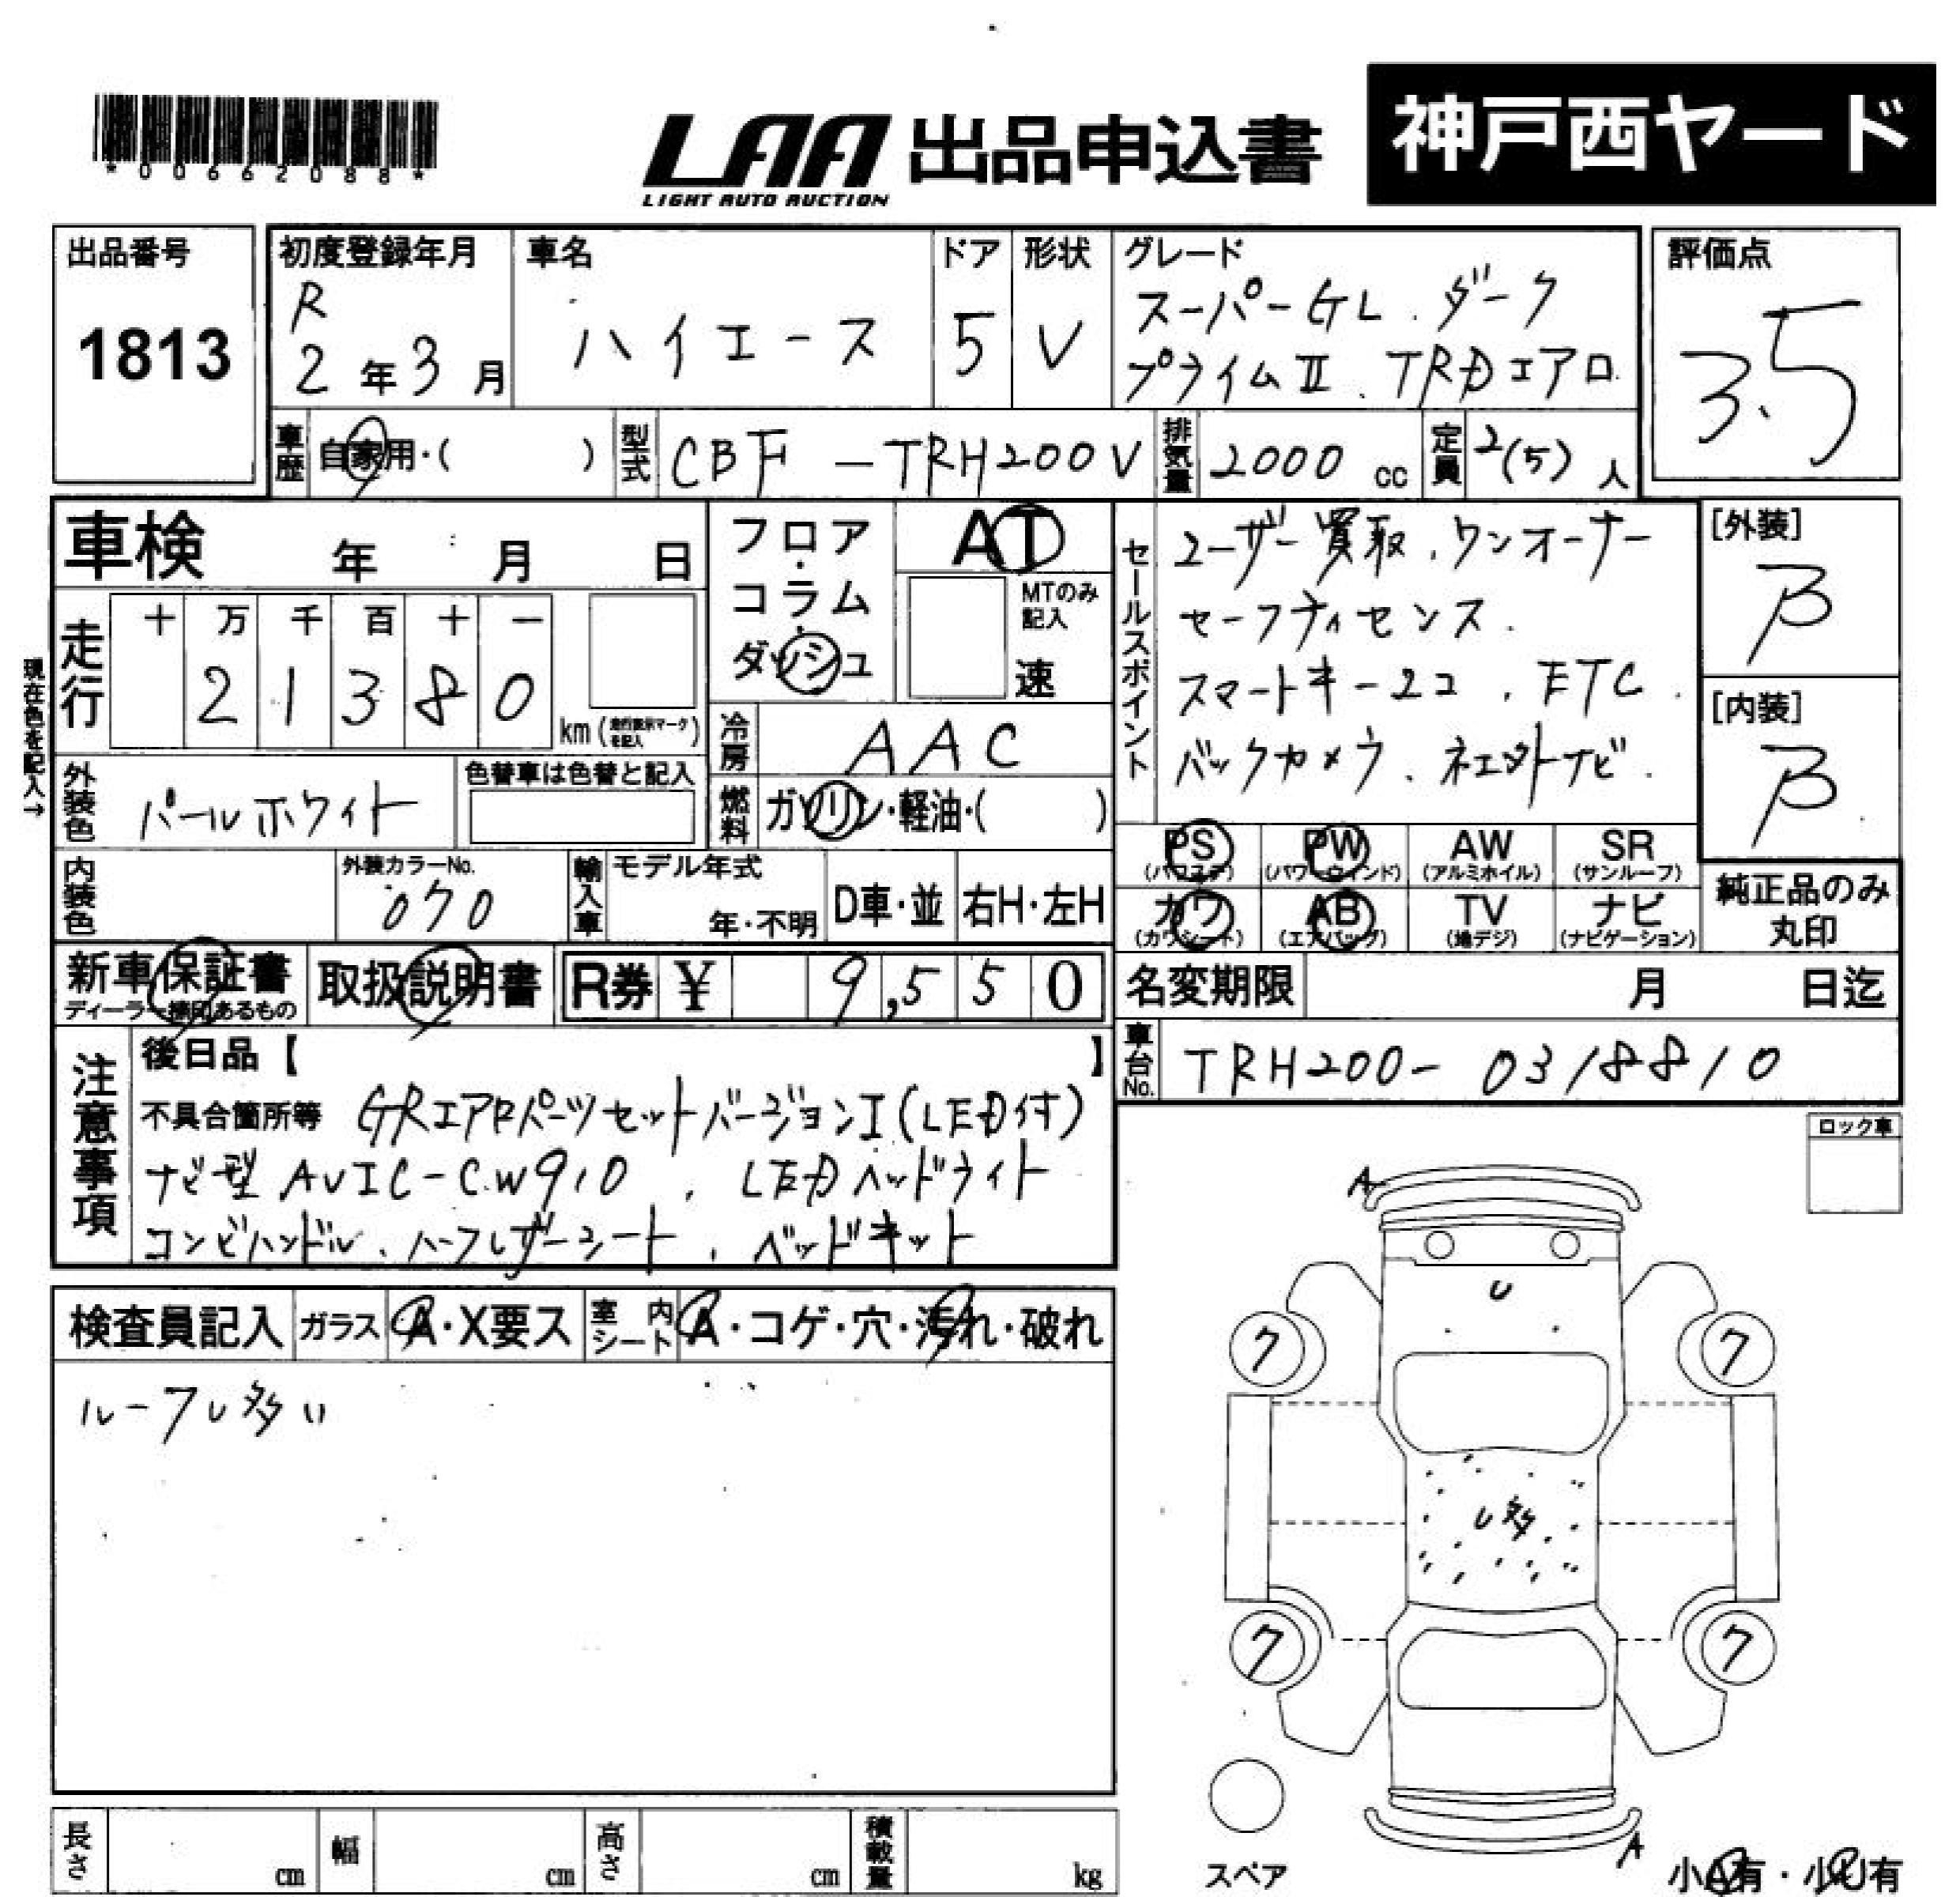 *00662088*
LAA 出品申込書
LIGHT AUTO AUCTION
神戸西ヤード
出品番号
1813
初度登録年月
R
2年3月
車名
ハイエース
ドア
5
形状
V
グレード
スーパーGL.ダーク
プライムⅡ、TRDエアロ
評価点
3.5
車歴
自家用・( )
型式
CBF-TRH200V
排気量
2000 cc
定員
2(5)人
車検 年 月 日
フロア・コラム・ダッシュ
AT
MTのみ記入
速
現在色を記入→
走行
十 万 千 百 十 一
2 1 3 8 0
km(走行表示マークを記入)
冷房
AAC
外装色
パールホワイト
色替車は色替と記入
燃料
ガソリン・軽油・( )
セールスポイント
ユーザー買取、ワンオーナー
セーフティセンス.
スマートキー2コ、ETC.
バックカメラ、ネエットナビ.
[外装]
B
[内装]
B
内装色
外装カラーNo.
070
輸入車
モデル年式
年・不明
D車・並
右H・左H
PS
(パワステ)
PW
(パワーウインド)
AW
(アルミホイル)
SR
(サンルーフ)
カワ
(カワシート)
AB
(エアバッグ)
TV
(地デジ)
ナビ
(ナビゲーション)
純正品のみ
丸印
新車保証書
ディーラー捺印あるもの
取扱説明書
R券 ¥ 9,550
名変期限 月 日迄
車台No.
TRH200-0318810
注意事項
後日品【 】
不具合箇所等 GRエアロパーツセットバージョンI(LED付)
ナビ型 AVIC-CW910 、LEDヘッドライト
コンビハンドル、ハーフレザーシート、ベッドキット
ロック車
検査員記入
ガラス
A・X要ス
室内シート
A・コゲ・穴・汚れ・破れ
ルーフU多い
A
U
ク
ク
U多
ク
ク
A
スペア
小A有・小U有
長さ cm
幅 cm
高さ cm
積載量 kg